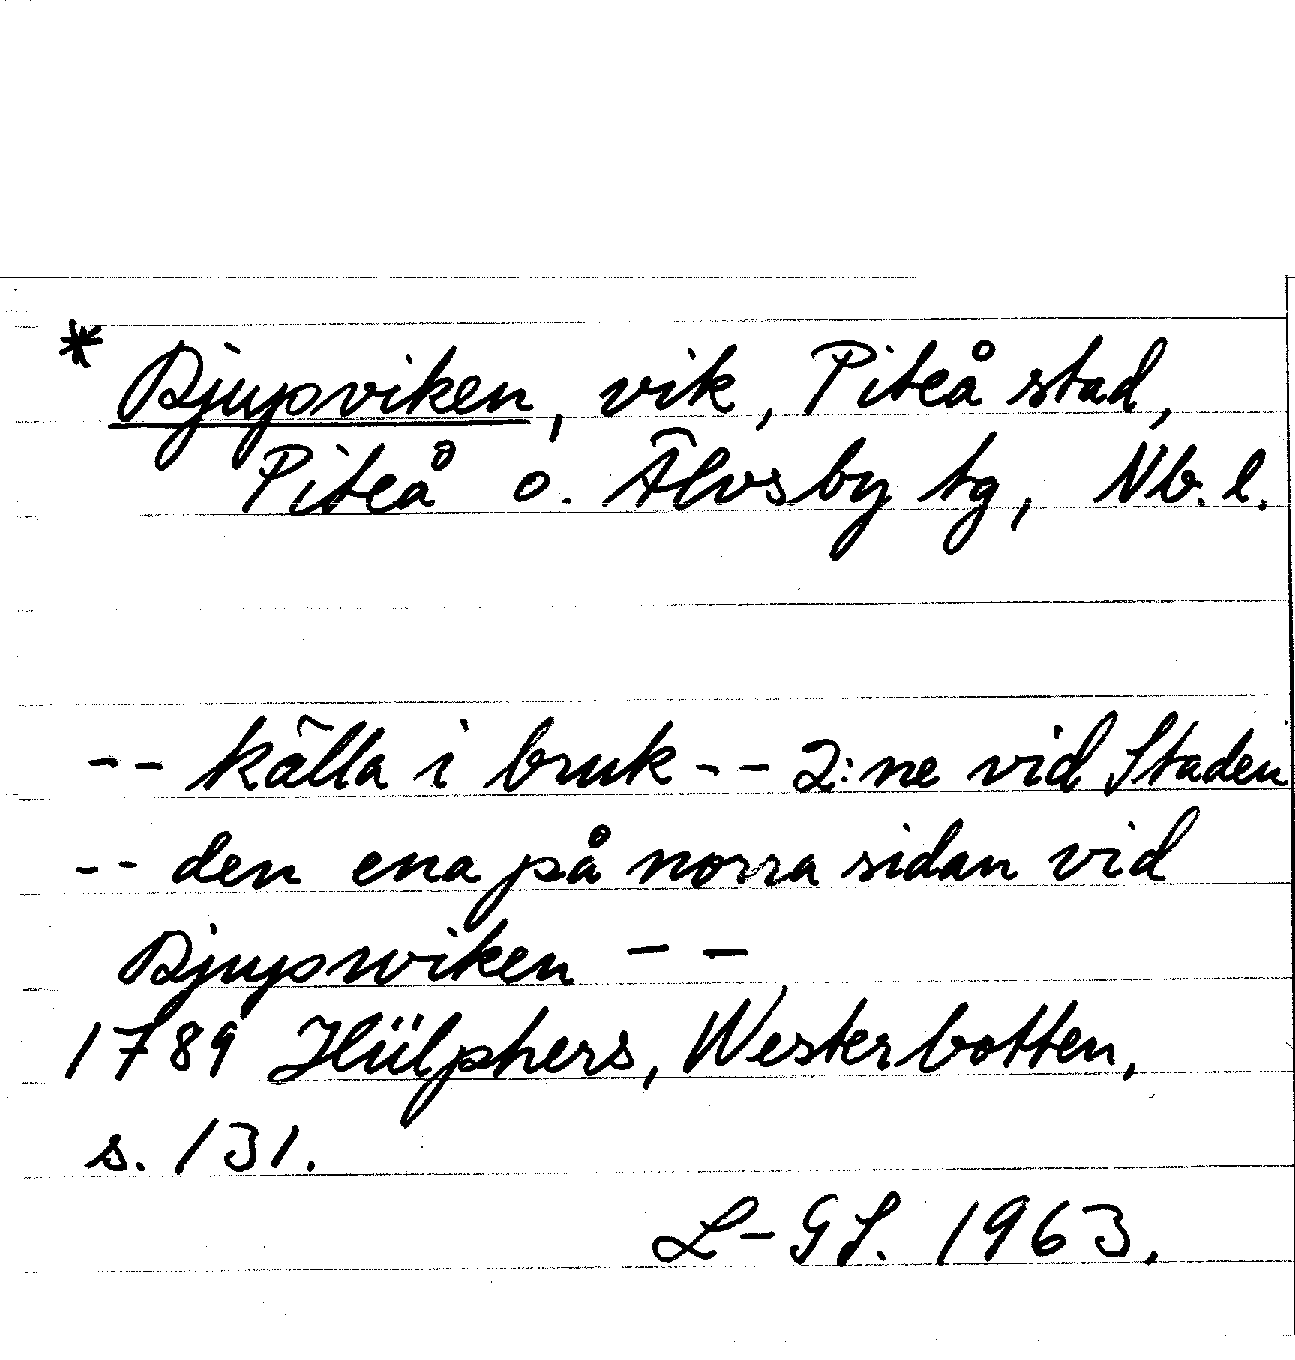 * Djupviken, vik, Piteå stad,
Piteå o. Älvsby tg, Nb. l.
-- källa i bruk -- 2:ne vid Staden
-- den ena på norra sidan vid
Djupwiken --
1789 Hülphers, Westerbotten,
s. 131.
L-GS. 1963.